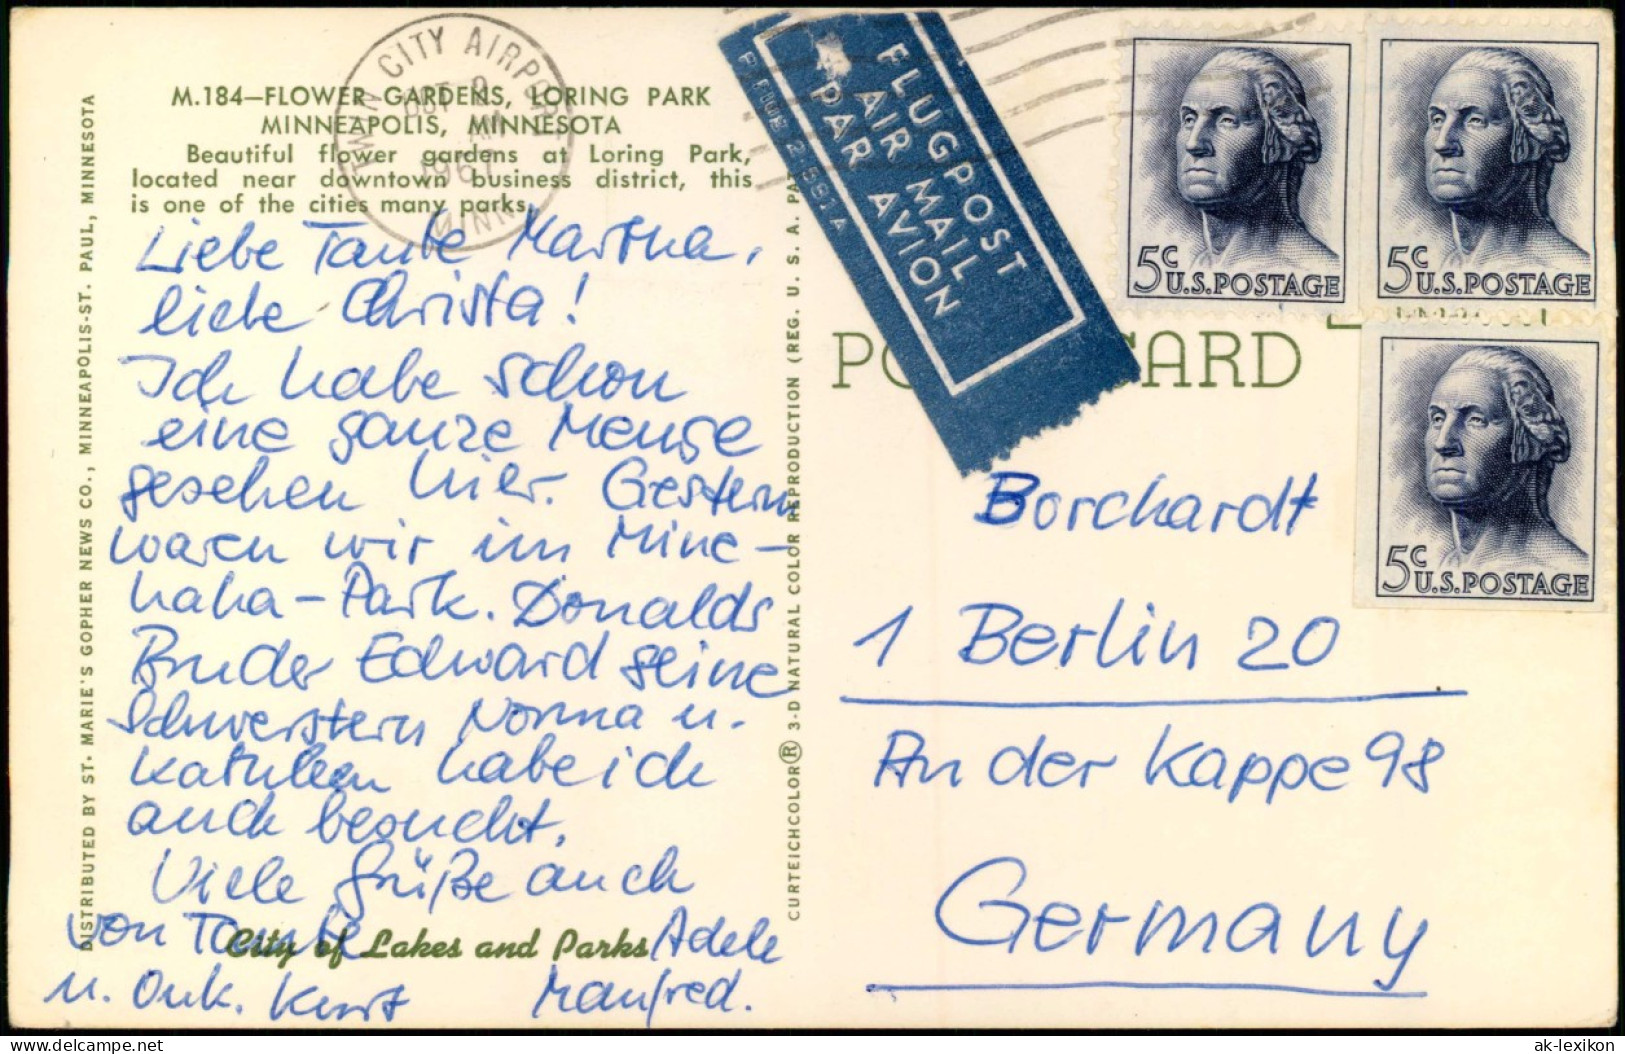 M.184—FLOWER GARDENS, LORING PARK
MINNEAPOLIS, MINNESOTA
Beautiful flower gardens at Loring Park,
located near downtown business district, this
is one of the cities many parks.
TWIN CITY AIRPORT
OCT 9
1967
MINN
Liebe Tante Martha,
liebe Christa!
Ich habe schon
eine ganze Menge
gesehen hier. Gestern
waren wir im Mine-
haha-Park. Donalds
Bruder Edward seine
Schwestern Norma u.
Kathleen habe ich
auch besucht.
Viele Grüße auch
von Tante Adele
u. Onk. Kurt Manfred.
City of Lakes and Parks
DISTRIBUTED BY ST. MARIE'S GOPHER NEWS CO., MINNEAPOLIS-ST. PAUL, MINNESOTA
CURTEICHCOLOR® 3-D NATURAL COLOR REPRODUCTION (REG. U. S. A. PA
FLUGPOST
AIR MAIL
PAR AVION
PO CARD
5c U.S.POSTAGE
5c U.S.POSTAGE
5c U.S.POSTAGE
Borchardt
1 Berlin 20
An der Kappe 98
Germany
delcampe.net
ak-lexikon